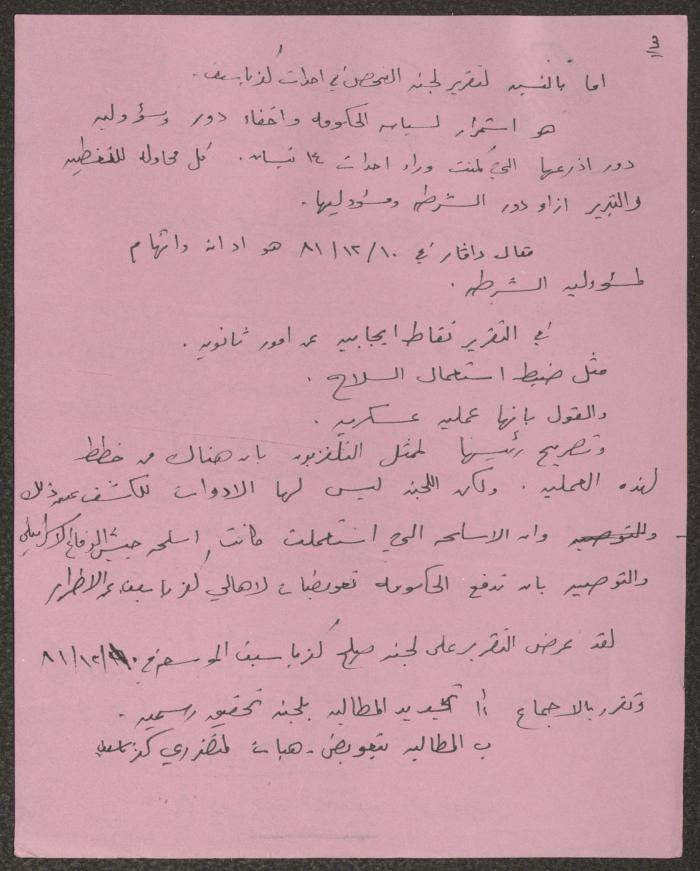 ١/٣
اما بالنسبه لتقرير لجنة الفحص في احداث كفر ياسيف.
هو استمرار لسياسه الحكومه واخفاء دور ومسؤوليه
دور اذرعها التي كمنت وراء احداث ١٤ نيسان. كل محاوله للتغطيه
والتبرير ازاء دور الشرطه ومسؤوليها.
مقال دافار في ٨١/١٢/١٠ هو ادانه واتهام
لمسئوليه الشرطه.
في التقرير نقاط ايجابيه عن امور ثانويه.
مثل ضبط استعمال السلاح.
والقول بانها عمليه عسكريه.
وتصريح رئيسها لممثل التلفزيون بان هناك من خطط
لهذه العمليه. ولكن اللجنه ليس لها الادوات للكشف عن ذلك
وان الاسلحه التي استعملت كانت اسلحه جيش الدفاع الاسرائيلي
والتوصيه بان تدفع الحكومه تعويضات لاهالي كفر ياسيف عن الاضرار
لقد عرض التقرير على لجنة صلح كفر ياسيف الموسع في ٨١/١٢/
وتقرر بالاجماع أ تجديد المطالبه بلجنه تحقيق رسميه.
ب المطالبه بتعويض - هبات لمتضرري كفر ياسيف